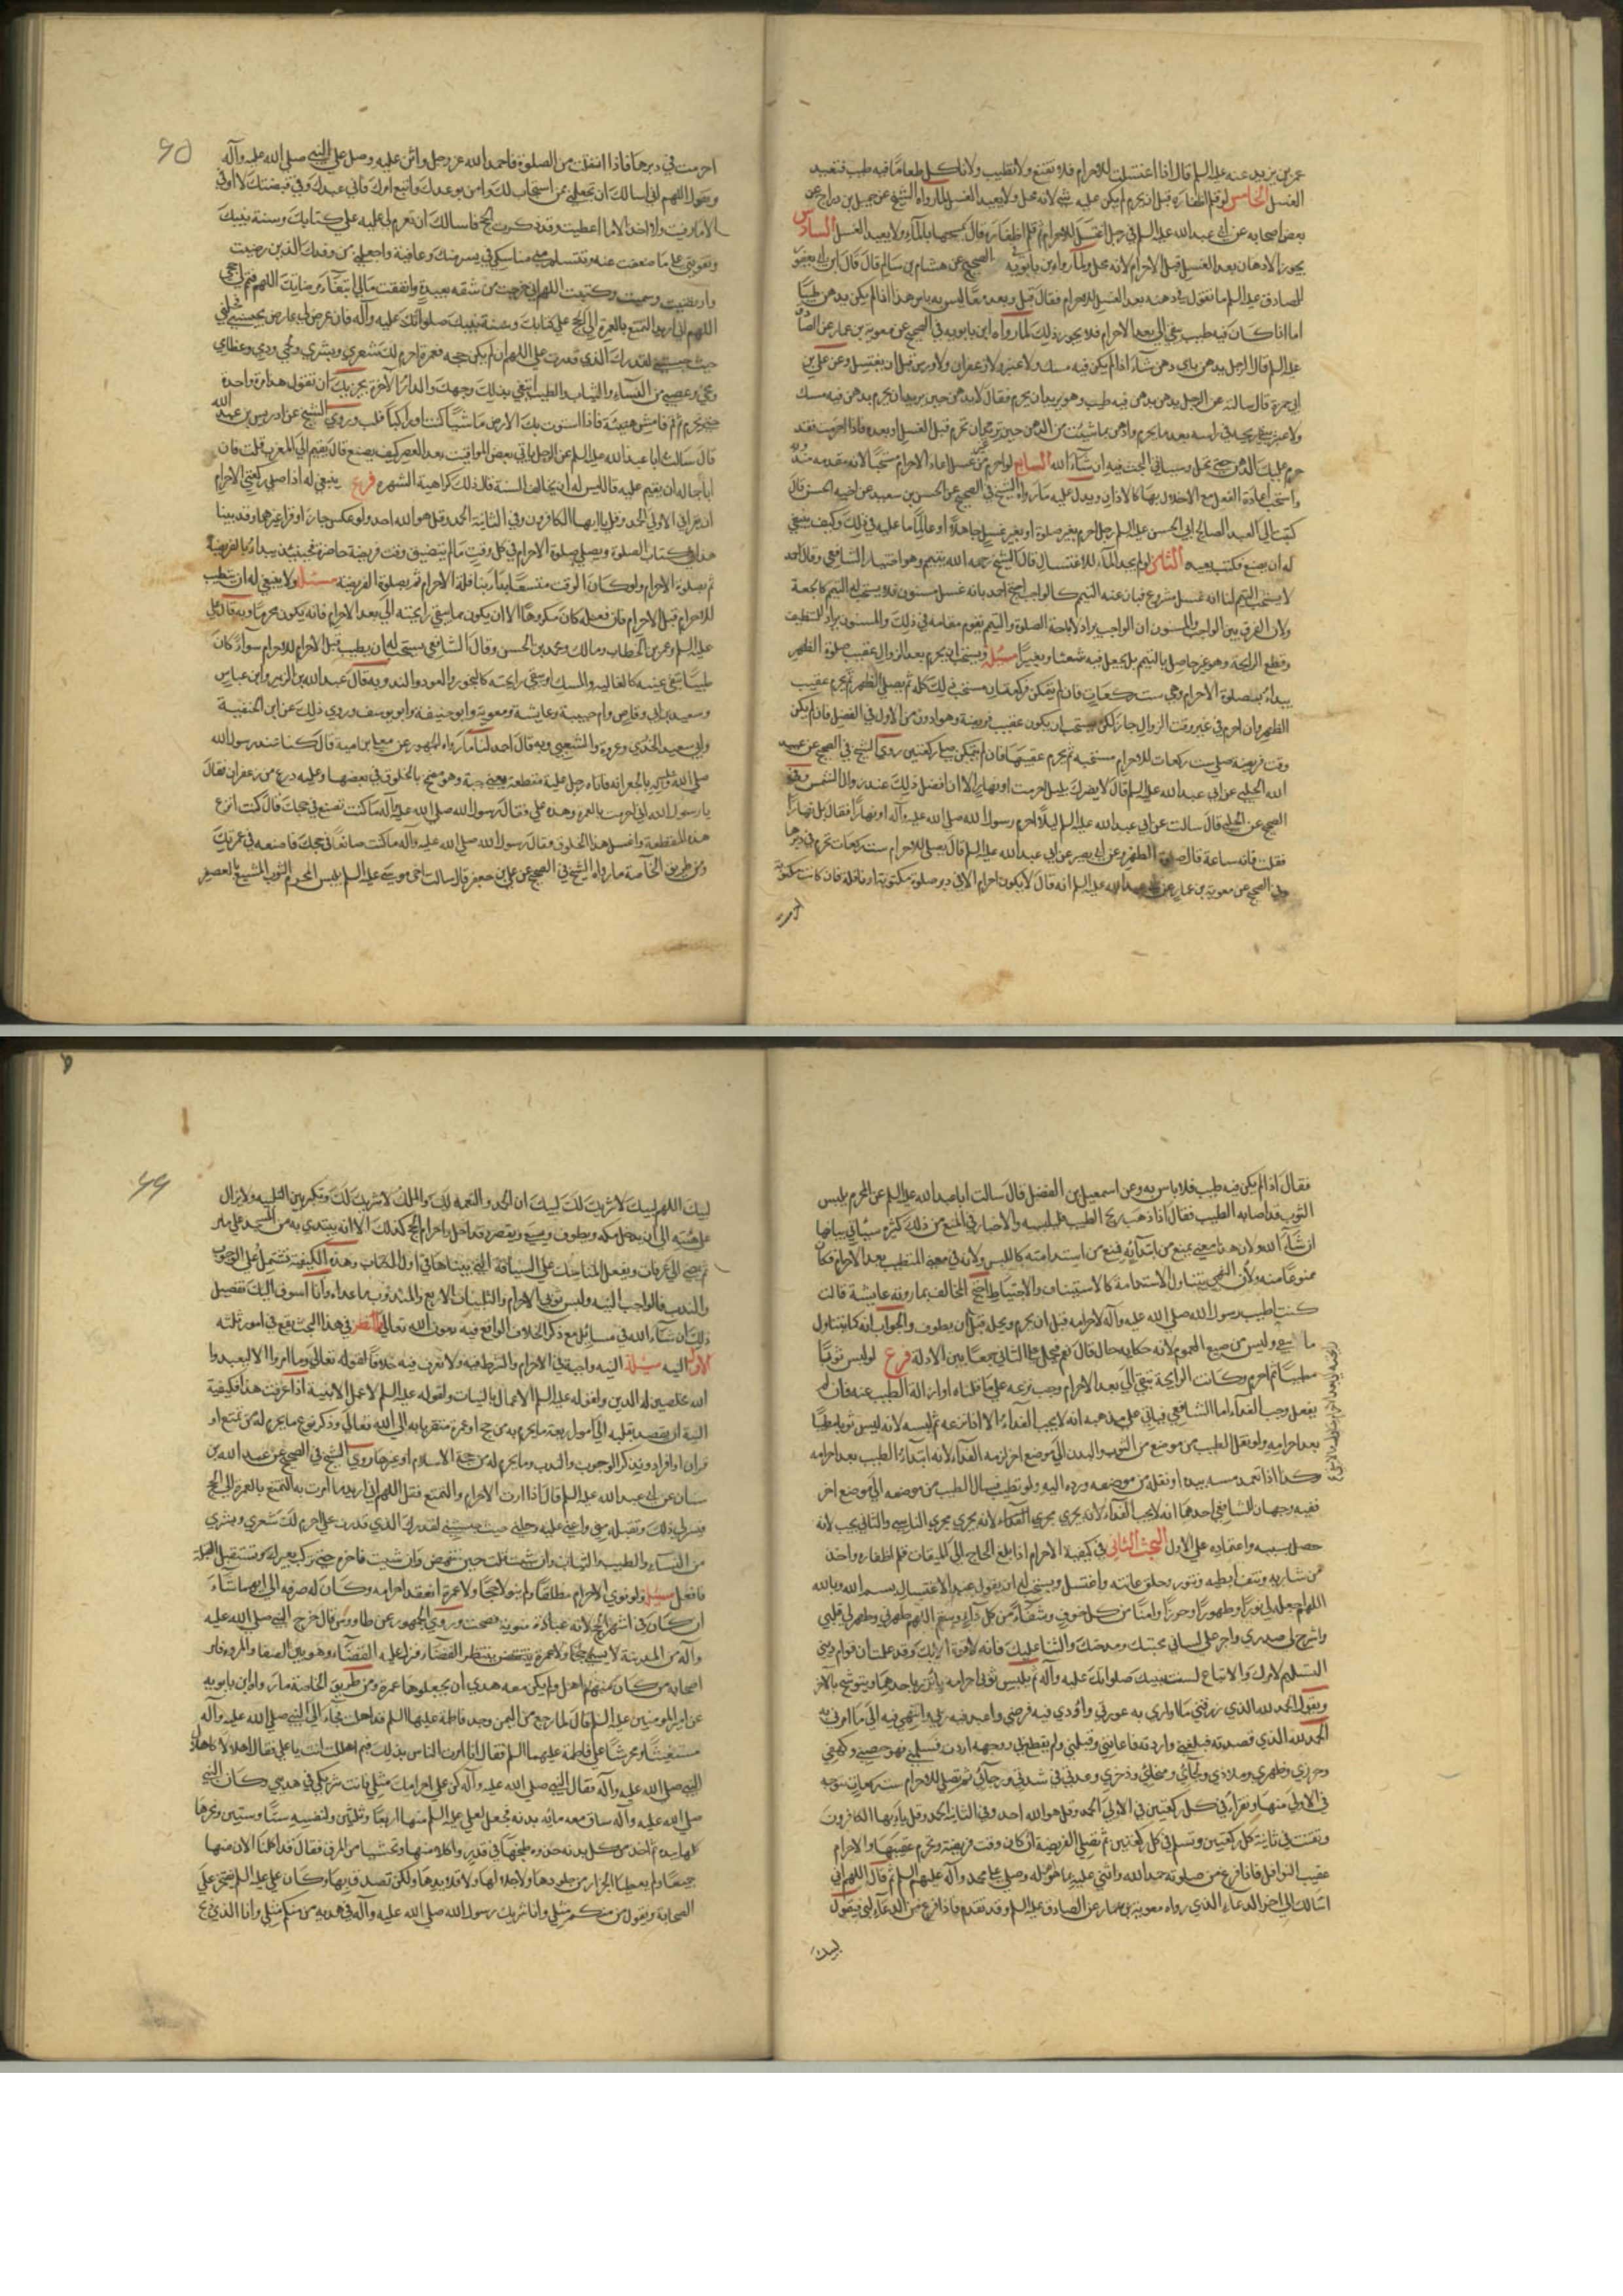 عمر بن يزيد عنه عليه السلم قال اذا اغتسلت للاحرام فلا تقنع ولا تطيب ولا تاكل طعاما فيه طيب فتعيد
الغسل الخامس لو قلم اظفاره قبل ان يحرم لم يكن عليه شي لانه محل ولا يعيد الغسل لما رواه الشيخ عن جميل بن دراج عن
بعض اصحابه عن ابي عبد الله عليه السلم في رجل اغتسل للاحرام ثم قلم اظفاره قال يمسحها بالماء ولا يعيد الغسل السادس
يجوز الادهان بعد الغسل قبل الاحرام لانه محل ولما رواه ابن بابويه في الصحيح عن هشام بن سالم قال قال ابن ابي يعفور
للصادق عليه السلم ما تقول في دهنه بعد الغسل للاحرام فقال قبل وبعد ومعا ليس به باس هذا اذا لم يكن بدهن طيبا
اما اذا كان فيه طيب يبقى الى بعد الاحرام فلا يجوز ذلك لما رواه ابن بابويه في الصحيح عن معوية بن عمار عن الصادق
عليه السلم قال الرجل يدهن باي دهن شاء اذا لم يكن فيه مسك ولا عنبر ولا زعفران ولا ورس قبل ان يغتسل وعن علي بن
ابي حمزة قال سالته عن الرجل يدهن بدهن فيه طيب وهو يريد ان يحرم فقال لا يدهن حين يريد ان يحرم بدهن فيه مسك
ولا عنبر يبقى ريحه في راسه بعد ما يحرم وادهن بما شئت من الدهن حين تريد ان تحرم قبل الغسل او بعده فاذا احرمت فقد
حرم عليك الدهن حتى تحل وسياتي البحث فيه ان شاء الله السابع لو احرم من غير غسل اعاد الاحرام مستحبا لانه مقدمة مندوبة
واستحب اعادة الفعل مع الاخلال بها كالاذان ويدل عليه ما رواه الشيخ في الصحيح عن الحسن بن سعيد عن اخيه الحسين قال
كتبت الى العبد الصالح ابي الحسن عليه السلم رجل احرم بغير صلوة او بغير غسل جاهلا او عالما ما عليه في ذلك وكيف ينبغي
له ان يصنع فكتب يعيده الثامن لو لم يجد الماء للاغتسال قال الشيخ رحمه الله يتيمم وهو اختيار الشافعي وقال احمد
لا يستحب التيمم لنا انه غسل مشروع فناب عنه التيمم كالواجب احتج احمد بانه غسل مسنون فلا يستحب له التيمم كالجمعة
ولان الفرق بين الواجب والمسنون ان الواجب يراد لاباحة الصلوة والتيمم يقوم مقامه في ذلك والمسنون يراد للتنظيف
وقطع الرايحة وهو غير حاصل بالتيمم بل يحصل فيه شعثا وتغييرا مسئلة ويستحب ان يحرم بعد الزوال عقيب صلوة الظهر
يبداء بصلوة الاحرام وهي ست ركعات فان لم يتمكن فركعتان مستحب ذلك كله ثم يصلي الظهر ثم يحرم عقيب
الظهر وان احرم في غير وقت الزوال جاز لكن يستحب ان يكون عقيب فريضة وهو ادون من الاول في الفضل فان لم يكن
وقت فريضة صلى ست ركعات للاحرام مستحبة ثم يحرم عقيبها فان لم يتمكن صلى ركعتين روى الشيخ في الصحيح عن عبيد
الله الحلبي عن ابي عبد الله عليه السلم قال لا يضرك بليل احرمت او نهار الا ان افضل ذلك عند زوال الشمس وفي
الصحيح عن الحلبي قال سالت عن ابي عبد الله عليه السلم ليلا احرم رسول الله صلى الله عليه وآله او نهارا فقال بل نهارا
فقلت فاية ساعة قال صلوة الظهر وعن ابي بصير عن ابي عبد الله عليه السلم قال تصلي للاحرام ست ركعات تحرم في دبرها
وفي الصحيح عن معوية بن عمار عن ابي عبد الله عليه السلم انه قال لا يكون احرام الا في دبر صلوة مكتوبة او نافلة فان كانت مكتوبة
احرمت
٦٥
احرمت في دبرها فاذا انفتلت من الصلوة فاحمد الله عز وجل واثن عليه وصل على النبي صلى الله عليه وآله
وتقول اللهم اني اسالك ان تجعلني ممن استجاب لك وامن بوعدك واتبع امرك فاني عبدك وفي قبضتك لا اوقى
الا ما وقيت ولا اخذ الا ما اعطيت وقد ذكرت الحج فاسالك ان تعزم لي عليه على كتابك وسنة نبيك
وتقويني على ما ضعفت عنه وتتسلم مني مناسكي في يسر منك وعافية واجعلني من وفدك الذين رضيت
وارتضيت وسميت وكتبت اللهم اني خرجت من شقة بعيدة وانفقت مالي ابتغاء مرضاتك اللهم فتمم لي حجي
اللهم اني اريد التمتع بالعمرة الى الحج على كتابك وسنة نبيك صلواتك عليه وآله فان عرض لي عارض يحبسني فحلني
حيث حبستني لقدرك الذي قدرت علي اللهم ان لم يكن حجة فعمرة احرم لك شعري وبشري ولحمي ودمي وعظامي
ومخي وعصبي من النساء والثياب والطيب ابتغي بذلك وجهك والدار الآخرة يجزيك ان تقول هذا مرة واحدة
حين تحرم ثم قم فامش هنيئة فاذا استوت بك الارض ماشيا كنت او راكبا فلب وروى الشيخ عن ادريس بن عبد الله
قال سالت ابا عبد الله عليه السلم عن الرجل ياتي بعض المواقيت بعد العصر كيف يصنع قال يقيم الى المغرب قلت فان
ابا جماله ان يقيم عليه قال ليس له ان يخالف السنة قال ذلك كراهية الشهرة فرع ينبغي له اذا صلى ركعتي الاحرام
ان يقرا في الاولى الحمد وقل يا ايها الكافرون وفي الثانية الحمد وقل هو الله احد ولو عكس جاز او قرا غيرهما وقد بينا
هذا في كتاب الصلوة ويصلي صلوة الاحرام في كل وقت ما لم يتضيق وقت فريضة حاضرة فحينئذ يبداء بالفريضة
ثم بصلوة الاحرام ولو كان الوقت متسعا ابتداء بنافلة الاحرام ثم بصلوة الفريضة مسئلة ولا ينبغي له ان يتطيب
للاحرام قبل الاحرام فان فعله كان مكروها الا ان يكون مما يبقى رايحته الى بعد الاحرام فانه يكون محرما وبه قال علي
عليه السلم وعمر بن الخطاب ومالك ومحمد بن الحسن وقال الشافعي يستحب له ان يطيب قبل الاحرام للاحرام سواء كان
طيبا يبقى عينه كالغالية والمسك او يبقى رايحته كالبخور والعود والند وبه قال عبد الله بن الزبير وابن عباس
وسعيد بن ابي وقاص وام حبيبة وعايشة ومعوية وابو حنيفة وابو يوسف وروي ذلك عن ابن الحنفية
وابي سعيد الخدري وعروة والشعبي وبه قال احمد لنا ما رواه الجمهور عن يعلي بن امية قال كنا عند رسول الله
صلى الله عليه وآله بالجعرانة فاتاه رجل عليه مقطعة يعني جبة وهو مضمخ بالخلوق في بعضها وعليه درع من زعفران فقال
يا رسول الله اني احرمت بالعمرة وهذه علي فقال رسول الله صلى الله عليه وآله ما كنت تصنع في حجك قال كنت انزع
هذه المقطعة واغسل هذا الخلوق فقال رسول الله صلى الله عليه وآله ما كنت صانعا في حجك فاصنعه في عمرتك
ومن طريق الخاصة ما رواه الشيخ في الصحيح عن علي بن جعفر قال سالت اخي موسى عليه السلم يلبس المحرم الثوب المشبع بالعصفر
فقال اذا لم يكن فيه طيب فلا باس به وعن اسمعيل بن الفضل قال سالت ابا عبد الله عليه السلم عن المحرم يلبس
الثوب قد اصابه الطيب فقال اذا ذهب ريح الطيب فليلبسه والاخبار في المنع من ذلك كثيرة سياتي بيانها
ان شاء الله ولان هذا معنى يمنع من ابتدائه فمنع من استدامته كاللبس ولانه في معنى المتطيب بعد الاحرام فكان
ممنوعا منه ولان النهي يتناول الاستدامة كالاستيناف والاحتياط احتج المخالف بما روته عايشة قالت
كنت اطيب رسول الله صلى الله عليه وآله لاحرامه قبل ان يحرم ويحله قبل ان يطوف والجواب انه كما يتناول
ما يبقى وليس من صيغ العموم لانه حكاية حال قال نعم محل على الثاني جمعا بين الادلة فرع لو لبس ثوبا
مطيبا ثم احرم وكانت الرايحة تبقى الى بعد الاحرام وجب نزعه على ما قلناه او ازالة الطيب عنه فان لم
يفعل وجب الفداء اما الشافعي فياتي على مذهبه انه لا يجب الفداء الا اذا نزعه ثم لبسه لانه لبس ثوبا مطيبا
بعد احرامه ولو نقل الطيب من موضع من الثوب والبدن الى موضع اخر لزمه الفداء لانه ابتداء الطيب بعد احرامه
وكذا اذا تعمد مسه بيده او نقله من موضعه ورده اليه ولو تطيب فسال الطيب من موضعه الى موضع اخر
ففيه وجهان للشافعي احدهما انه لا يجب الفداء لانه يجري مجرى الناسي والثاني يجب لانه
حصل بسببه واعتماده على الاول البحث الثاني في كيفية الاحرام اذا بلغ الحاج الى الميقات قلم اظفاره واخذ
من شاربه ونتف ابطيه وتنور وحلق عانته واغتسل ويستحب له ان يقول عند الاغتسال بسم الله وبالله
اللهم اجعله لي نورا وطهورا وحرزا وامنا من كل خوف وشفاء من كل داء وسقم اللهم طهرني وطهر لي قلبي
واشرح لي صدري واجر على لساني محبتك ومدحتك والثنا عليك فانه لا قوة الا بك وقد علمت ان قوام ديني
التسليم لامرك والاتباع لسنة نبيك صلواتك عليه وآله ثم يلبس ثوبي احرامه ياتزر باحدهما ويتوشح بالاخر
ويقول الحمد لله الذي رزقني ما اواري به عورتي واؤدي فيه فرضي واعبد فيه ربي وانتهي فيه الى ما امرني به
الحمد لله الذي قصدته فبلغني واردته فاعانني وقبلني ولم يقطع بي ووجهه اردت فسلمني فهو حصني وكهفي
وحرزي وظهري وملاذي ولجائي ومنجائي وذخري وعدتي في شدتي ورجائي ثم تصلي للاحرام ست ركعات يتوجه
في الاولى منها ويقراء في كل ركعتين في الاولى الحمد وقل هو الله احد وفي الثانية الحمد وقل يا ايها الكافرون
ويقنت في ثانية كل ركعتين وتسلم في كل ركعتين ثم تصلي الفريضة ان كان وقت فريضة وتحرم عقيبها والاحرام
عقيب النوافل فاذا فرغ من صلوته حمد الله واثنى عليه بما هو اهله وصلى على محمد وآله عليهم السلم ثم قال اللهم اني
اسالك الى اخر الدعاء الذي رواه معوية بن عمار عن الصادق عليه السلم وقد تقدم فاذا فرغ من الدعاء لبى فيقول
لبيك
٦٦
لبيك اللهم لبيك لا شريك لك لبيك ان الحمد والنعمة لك والملك لا شريك لك وتكبر بين التلبيه ولا يزال
على هيئته الى ان يدخل مكة ويطوف ويسعى ويقصر وقد احل واحرام الحج كذلك الا انه يبتدي به من المسجد على ما مر
ثم يمضي الى عرفات ويفعل المناسك على السياقة التي بيناها في اول الكتاب وهذه الكيفية تشتمل على الوجوب
والندب فالواجب النية ولبس ثوبي الاحرام والتلبيات الاربع والمندوب ما عداه وانا اسوق اليك تفصيل
ذلك ان شاء الله في مسايل مع ذكر الخلاف الواقع فيه بعون الله تعالى والنظر في هذا البحث يقع في امور ثلثة
الاول النية مسئلة النية واجبة في الاحرام والشرط فيه ولا نعرف فيه خلافا لقوله تعالى وما امروا الا ليعبدوا
الله مخلصين له الدين ولقوله عليه السلم الاعمال بالنيات ولقوله عليه السلم لا عمل الا بنية اذا عرفت هذا فكيفية
النية ان يقصد بقلبه الى امور اربعة ما يحرم به من حج او عمرة متقربا به الى الله تعالى وذكر نوع ما يحرم له من تمتع او
قران او افراد ويذكر الوجوب والندب وما يحرم له من حجة الاسلام او غيرها روى الشيخ في الصحيح عن عبد الله بن
سنان عن ابي عبد الله عليه السلم قال اذا اردت الاحرام والتمتع فقل اللهم اني اريد ما امرت به من التمتع بالعمرة الى الحج
فيسر لي ذلك وتقبله مني واعني عليه وحلني حيث حبستني لقدرك الذي قدرت علي احرم لك شعري وبشري
من النساء والطيب والثياب وان شئت قلت حين تنهض وان شئت فاخره حتى تركب بعيرك وتستقبل القبلة
فافعل مسئلة ولو نوى الاحرام مطلقا ولم ينو لا حجا ولا عمرة انعقد احرامه وكان له صرفه الى ايهما شاء
ان كان في اشهر الحج لانه عبادة منوية فصحت وروى الجمهور عن طاووس قال خرج النبي صلى الله عليه
وآله من المدينة لا يسمي حجا ولا عمرة ينتظر القضاء فنزل عليه القضاء وهو بين الصفا والمروة فامر
اصحابه من كان منهم اهل ولم يكن معه هدي ان يجعلوها عمرة ومن طريق الخاصة ما رواه ابن بابويه
عن امير المومنين عليه السلم قال لما رجع من اليمن وجد فاطمة عليها السلم قد احلت فجاء الى النبي صلى الله عليه وآله
مستفتيا ومحرشا على فاطمة عليها السلم فقال انا امرت الناس بذلك فبم اهللت انت يا علي فقال اهلالا كاهلال
النبي صلى الله عليه وآله فقال النبي صلى الله عليه وآله كن على احرامك مثلي فانت شريكي في هديي وكان النبي
صلى الله عليه وآله ساق معه ماية بدنة فجعل لعلي عليه السلم منها اربعا وثلثين ولنفسه ستا وستين ونحرها
كلها بيده ثم اخذ من كل بدنة جذوة طبخها في قدر واكلا منها وتحسيا من المرق فقال قد اكلنا الان منها
جميعا ولم يعطيا الجزارين جلودها ولا جلالها ولا قلايدها ولكن تصدق بها وكان علي عليه السلم يفتخر على
الصحابة ويقول من منكم مثلي وانا شريك رسول الله صلى الله عليه وآله في هديه من منكم مثلي وانا الذي ذبح